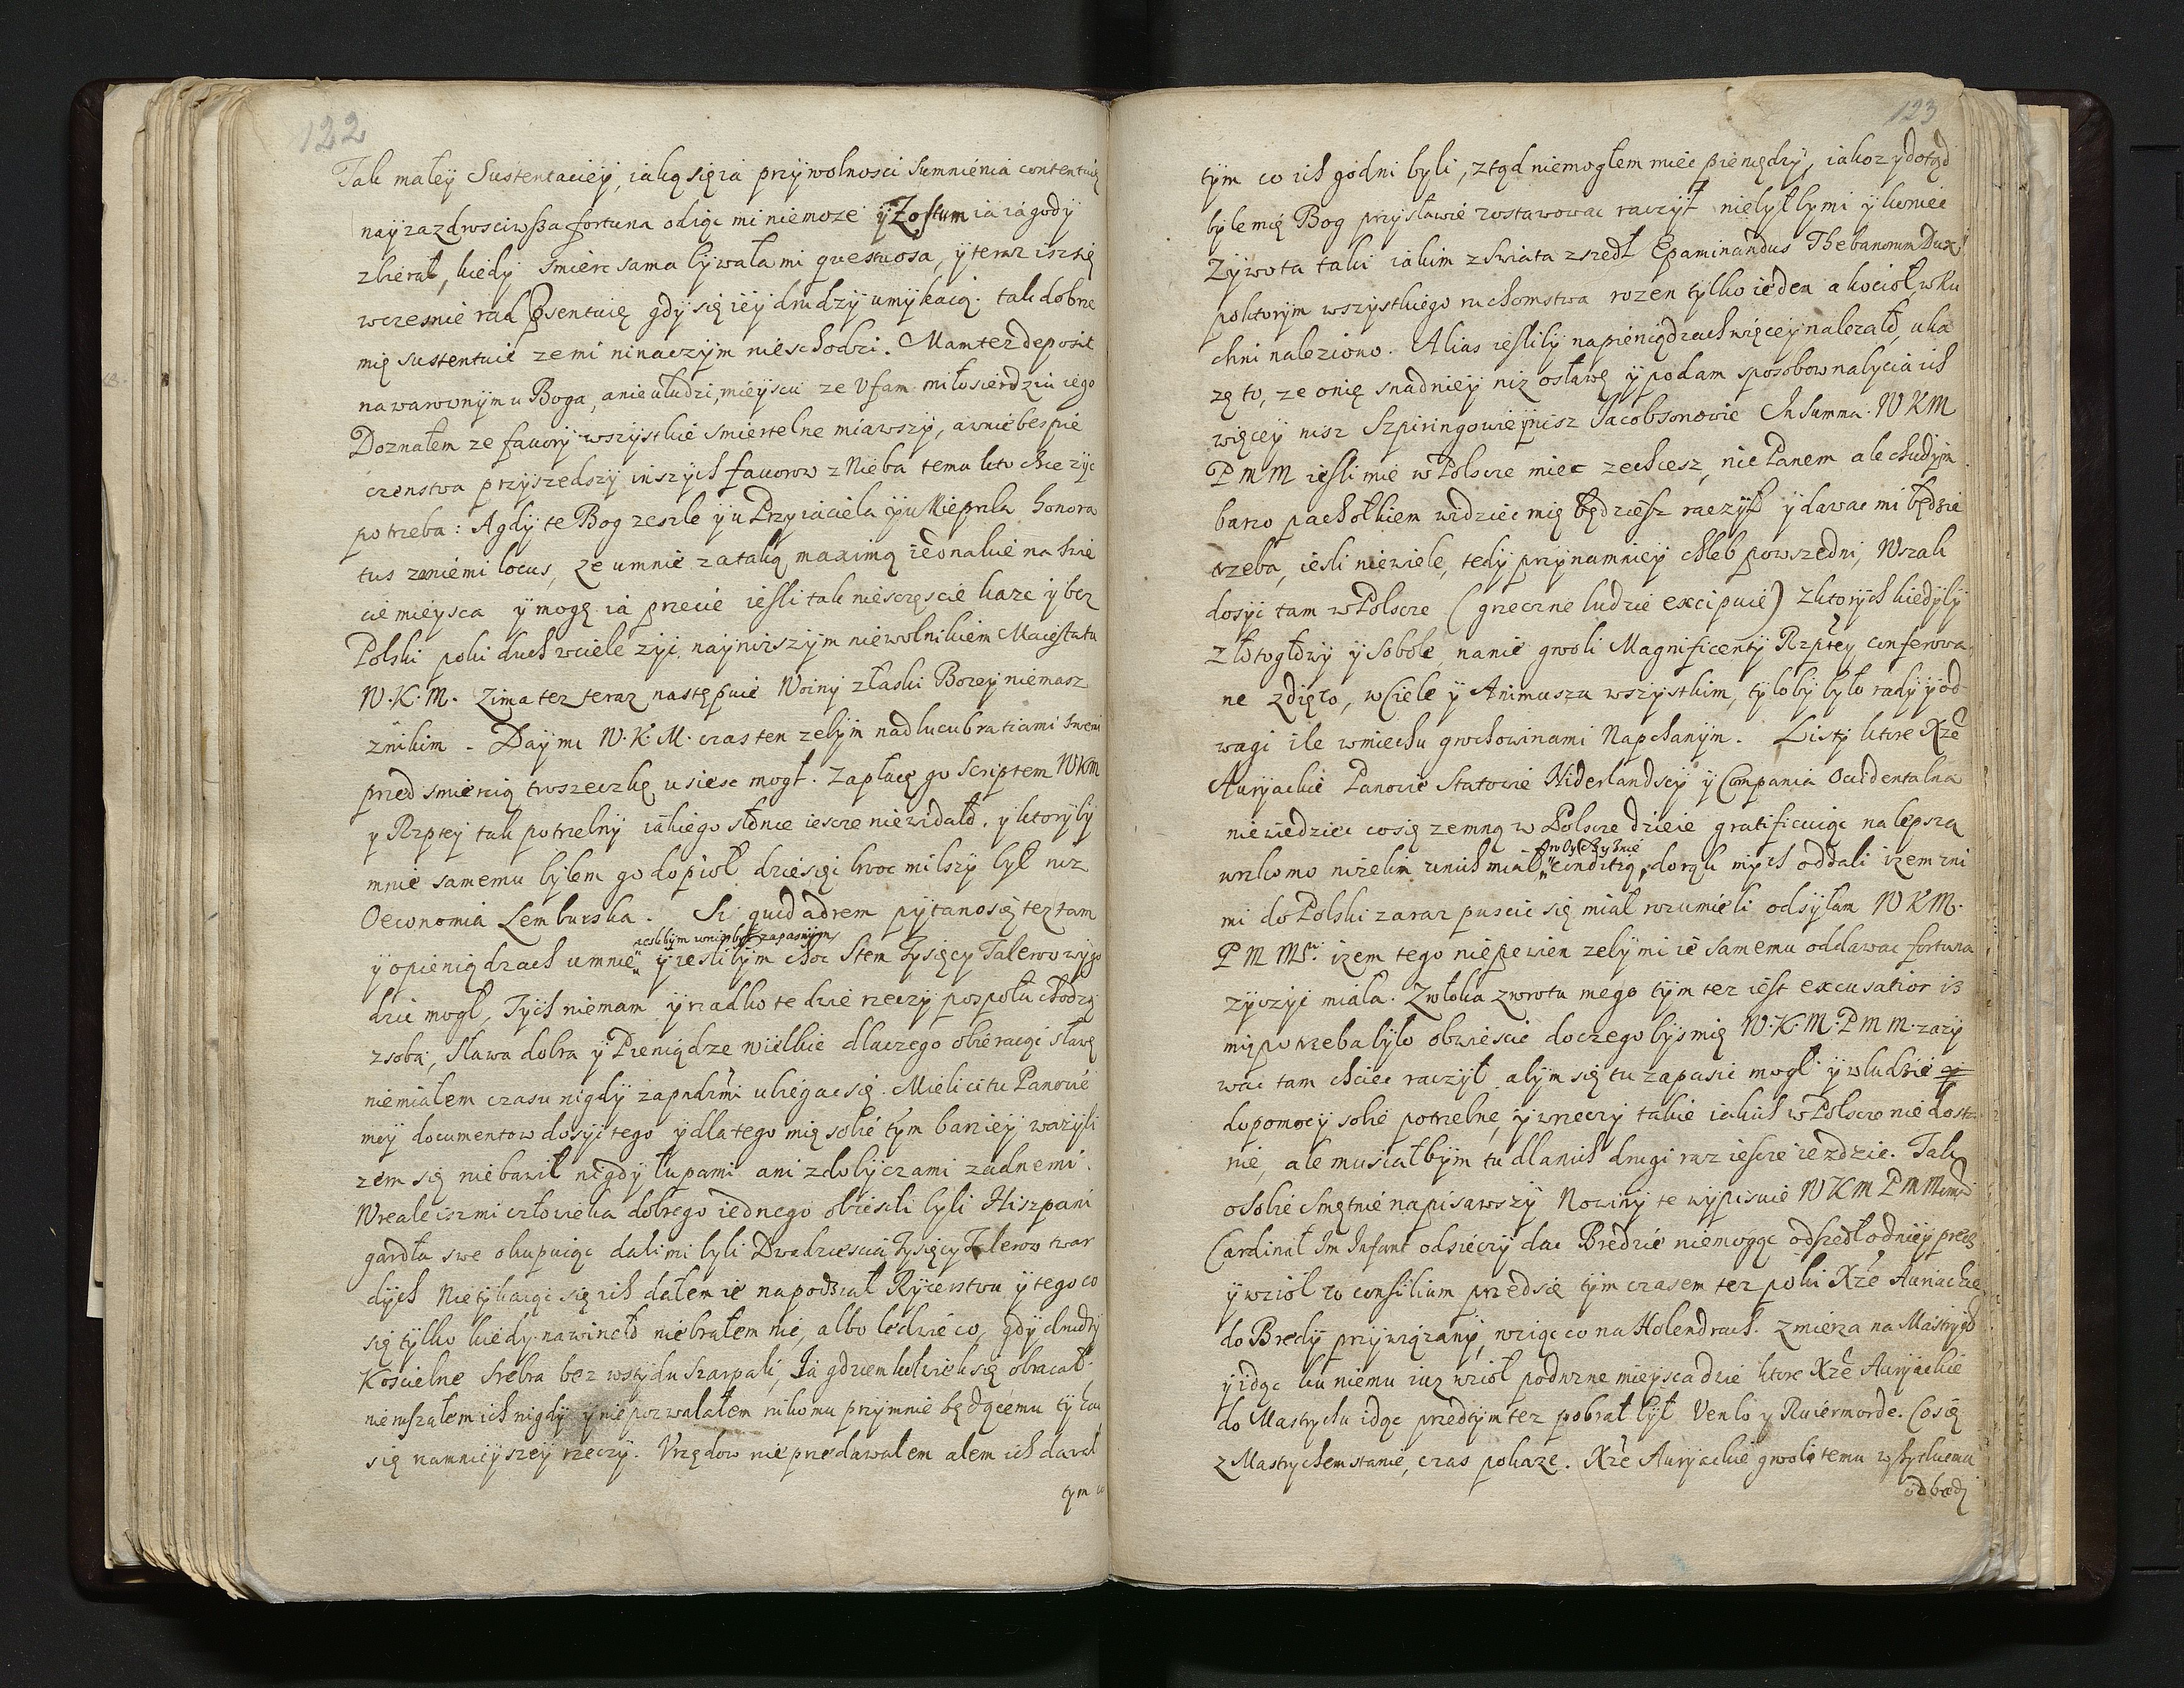 122
Tak małey Sustentaciey, iaką się ia przy wolnosci Sumnienia contentuię
nayzazdrosciwßa fortuna odiąc mi niemoze y Zostum ia iagody
zbierał, kiedy smierc sama bywała mi questuosa, y teraz iesz się
wczesnie rad Psentuię gdy się iey drudzy umykaią. tak dobrze
mię sustentuie ze mi ninaczym nieschodzi. Mam tez deposit
na warownym u Boga, a nie u ludzi, mieyscu ze Ufam miłosierdziu iego
Doznałem ze favory wszystkie smiertelne miawszy, a w niebespie
czenstwa przyszedszy inszych favorow z Nieba temu kto chce zyc
potrzeba: A gdy te Bog zeszle y u Przyiaciela y u Nieprzla honora
tus zaniemi locus, ze u mnie za taką maximą iednakie na swie
cie mieysca y mogę ia przecie iesli tak niesczęscie kaze y bez
Polski poki duch w ciele zyie naynizszym niewolnikiem Maiestatu
W.K.M. Zima tez teraz następuie Woiny z łaski Bozey niemasz
znikim - Day mi W.K.M. czas ten zebym nad lucubratiami swemi
przed smiercią troszeczkę usiesc mogł. Zapłacę go Scriptem WKM
y Rzptey tak potrzebny iakiego słonce iescze niewidało, y ktoryby
mnie samemu bylem go dopioł dziesięc kroc milszy był niz
Oeconomia Lemburska. Si quid ad rem pytano się tez tam
y o pieniądzach u mnie ieslibym w nie był zapasnym y ieslibym choc Stem Tysięcy Talerow wygo
dzic mogł, Tych niemam y rzadko te dwie rzeczy pospołu chodzą
z sobą, Sława dobra y Pieniądze wielkie dlaczego obieraiąc sławę
niemiałem czasu nigdy za pndzmi ubiegac się. Mieli ci tu Panowie
moy documentow dosyc tego y dla tego mię sobie tym barziey wazyli
zem się niebawił nigdy łupami ani zdobyczami zadnemi.
Wreale isz mi człowieka dobrego iednego obiesili byli Hiszpani
gardła swe okupuiąc dali mi byli Dwadziescia Tysięcy Talerow twar
dych Nietykaiąc się ich dałem ie na podział Rycerstwu y tego co
się tylko kiedy nawineło niebrałem nic, albo ledwie co, gdy drudzy
Koscielne srebra bez wstydu szarpali, Ia gdziemkolwiek się obracał
nieruszałem ich nigdy y nie pozwalałem nikomu przy mnie będącemu tykac
się namnieyszey rzeczy. Urzędow nie przedawałem alem ich dawał
tym co
123
tym co ich godni byli, ztąd niemogłem miec pieniędzy, iakoz y dotąd
byle mię Bog przy sławie zostawowac raczył nie byłby mi y koniec
Zywota taki iakim z swiata zszedł Epaminandus Thebanorum Dux,
po ktorym wszystkiego ruchomstwa rozen tylko ieden a kocioł w Ku
chni naleziono. Alias iesliby na pieniądzach więcey nalezało, uka
zę to, ze o nię snadniey niz o sławę y podam sposobow nabycia ich
więcey nisz Szpiringowie nisz Iacobsonowie In Summa. WKM
PMM iesli mie w Polscze miec zechcesz, nie Panem ale chudym
barzo pachołkiem widziec mię będziesz raczył y dawac mi będzie
trzeba, iesli niewiele, tedy przynamniey chleb powszedni, Wszak
dosyc tam w Polscze (grzeczne ludzie excipuię) z ktorych kiedyby
złotogłowy y Sobole, na nie gwoli Magnificenty Rzptey conferowa
ne zdięto, w Ciele y Animuszu wszystkim, tyloby było rady y od
wagi ile w miechu grochowinami Napchanym. Listy ktore Xze
Auryackie Panowie Statowie Niderlandscy y Compania Occidentalna
niewiedziec co się zemną w Polscze dzieie gratificuiąc na lepszą
wrkomo nizelim u nich miał w Oyczyznie conditią, do rąk mych oddali izem z ni
mi do Polski zaraz puscic się miał rozumieli odsyłam WKM.
PMM izem tego niepewien zeby mi ie samemu oddawac fortuna
zyczyc miała. Zwłoka zwrotu mego tym tez iest excusatior is
mię potrzeba było obwiescic do czego bys mię W.K.M. PMM. zazy
wac tam chciec raczył abym się tu zapasic mogł y w ludzie
do pomocy sobie potrzebne, y w rzeczy takie iakich w Polscze nie dosta
nie, ale musiałbym tu dla nich drugi raz iescze iezdzic. Tak
o sobie smętnie napisawszy Nowiny te wypisuię WKM PMMemu
Cardinał Im Infant odsieczy dac Bredzie niemogąc odszedł od niey precz
y wziął to consilium przed się tym czasem tez poki Xze Auriackie
do Bredy przywiązany, wziąc co na Holendrach. Zmierza na Mastrycht
y idąc ku niemu iuz wziął podurzne mieysca dwie ktore Xze Auryackie
do Mastrychu idąc przedtym tez pobrał był Venlo y Ruiermorde. Co się
z Mastrychem stanie, czas pokaze. Xze Auryackie gwoli temu wszytkiemu
odbedz